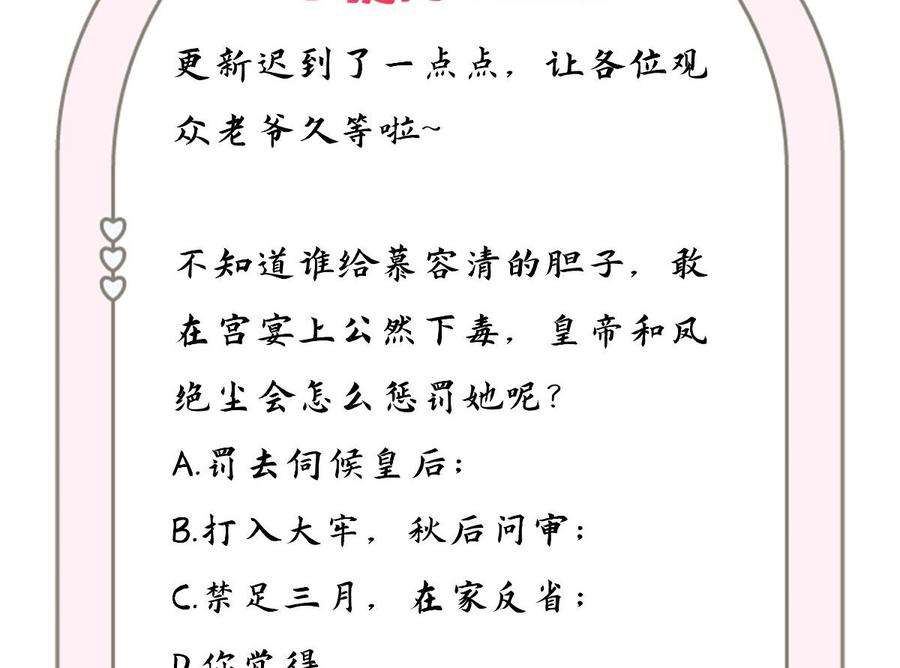 更新迟到了一点点，让各位观
众老爷久等啦~
不知道谁给慕容清的胆子，敢
在宫宴上公然下毒，皇帝和凤
绝尘会怎么惩罚她呢？
A.罚去伺候皇后；
B.打入大牢，秋后问审；
C.禁足三月，在家反省；
D.你觉得